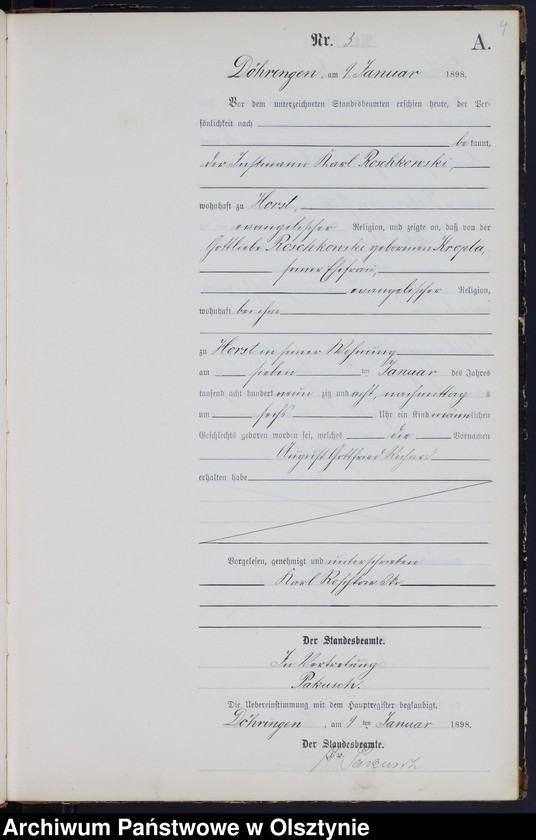 4
Nr. 3
A.
Döhringen, am 9 Januar 1898.
Vor dem unterzeichneten Standesbeamten erschien heute, der Per-
sönlichkeit nach
be kannt,
der Instmann Karl Roschkowski,
wohnhaft zu Horst,
evangelischer Religion, und zeigte an, daß von der
Gottliebe Roschkowski geborenen Kropla,
seiner Ehefrau,
evangelischer Religion,
wohnhaft bei ihm
zu Horst in seiner Wohnung
am sieben ten Januar des Jahres
tausend acht hundert neun zig und acht, nachmittag s
um sechs Uhr ein Kind männlichen
Geschlechts geboren worden sei, welches die Vornamen
August Gottfried Richard
erhalten habe
Vorgelesen, genehmigt und unterschrieben
Karl Roschkowski
Der Standesbeamte.
In Vertretung
Pakusch.
Die Uebereinstimmung mit dem Hauptregister beglaubigt.
Döhringen, am 9 ten Januar 1898.
Der Standesbeamte.
Pakusch
Archiwum Państwowe w Olsztynie